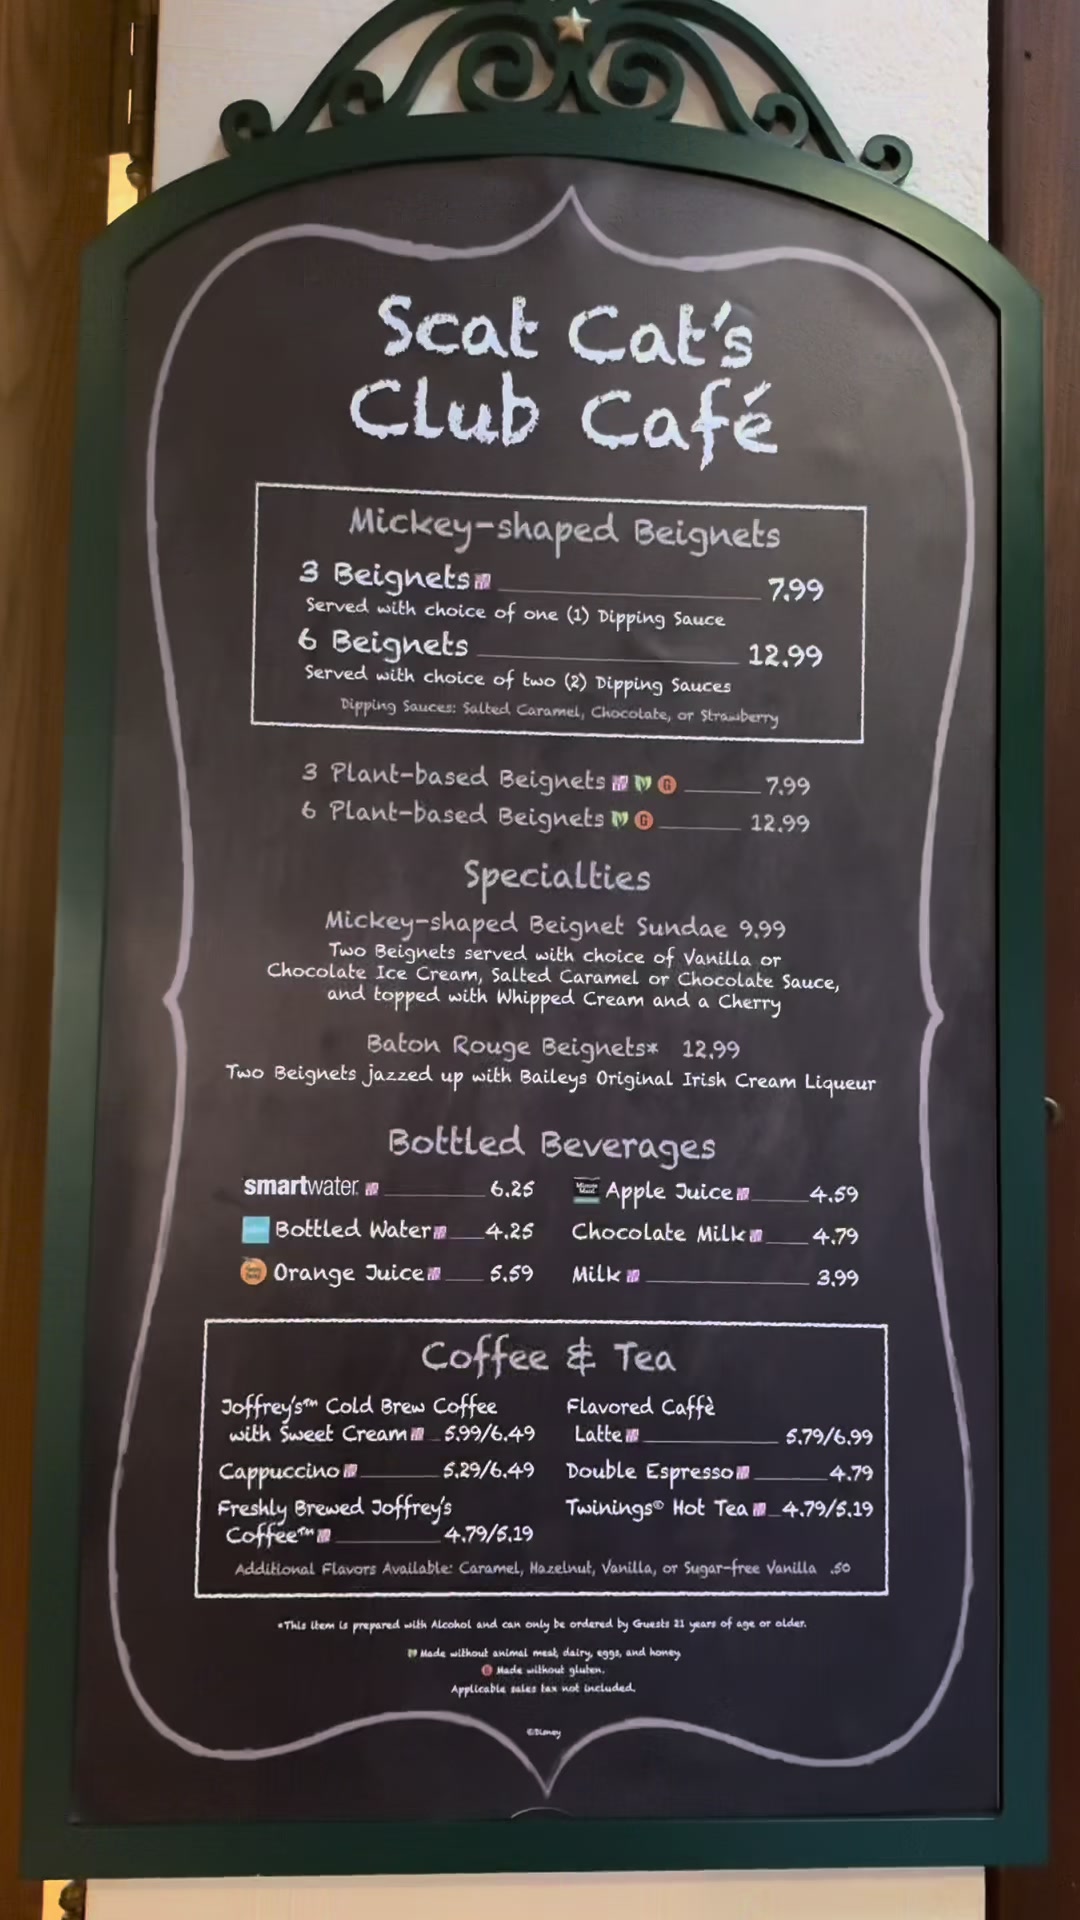 Scat Cat's
Club Café
Mickey-shaped Beignets
3 Beignets 7.99
Served with choice of one (1) Dipping Sauce
6 Beignets 12.99
Served with choice of two (2) Dipping Sauces
Dipping Sauces: Salted Caramel, Chocolate, or Strawberry
3 Plant-based Beignets G 7.99
6 Plant-based Beignets G 12.99
Specialties
Mickey-shaped Beignet Sundae 9.99
Two Beignets served with choice of Vanilla or
Chocolate Ice Cream, Salted Caramel or Chocolate Sauce,
and topped with Whipped Cream and a Cherry
Baton Rouge Beignets* 12.99
Two Beignets jazzed up with Baileys Original Irish Cream Liqueur
Bottled Beverages
smartwater 6.25
Bottled Water 4.25
Orange Juice 5.59
Minute Maid Apple Juice 4.59
Chocolate Milk 4.79
Milk 3.99
Coffee & Tea
Joffrey's™ Cold Brew Coffee
with Sweet Cream 5.99/6.49
Cappuccino 5.29/6.49
Freshly Brewed Joffrey's
Coffee™ 4.79/5.19
Flavored Caffè
Latte 5.79/6.99
Double Espresso 4.79
Twinings® Hot Tea 4.79/5.19
Additional Flavors Available: Caramel, Hazelnut, Vanilla, or Sugar-free Vanilla .50
*This item is prepared with Alcohol and can only be ordered by Guests 21 years of age or older.
Made without animal meat, dairy, eggs, and honey
G Made without gluten.
Applicable sales tax not included.
©Disney